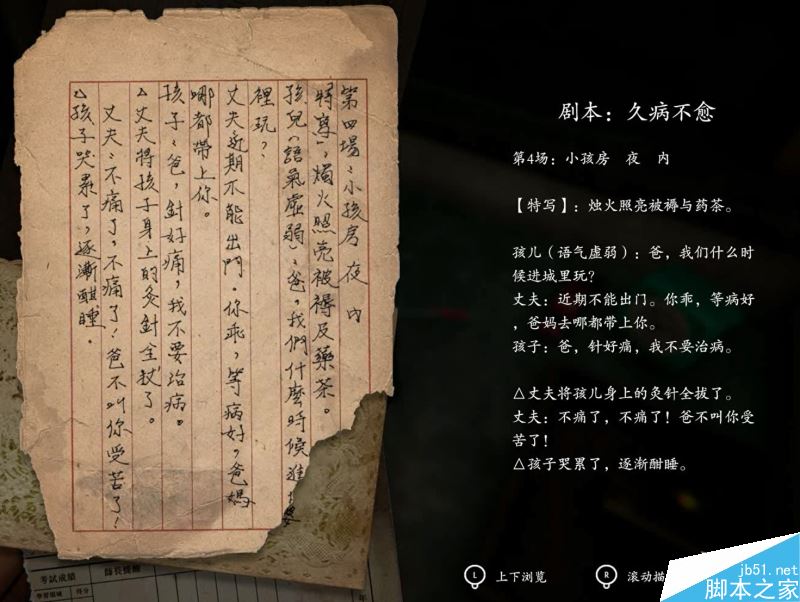 第四場：小孩房 夜 內
特寫：燭火照亮被褥及藥茶。
孩兒（語氣虛弱）：爸，我們什麼時候進
裡玩？
丈夫：近期不能出門。你乖，等病好，爸媽
哪都帶上你。
孩子：爸，針好痛，我不要治病。
△丈夫將孩子身上的灸針全拔了。
丈夫：不痛了，不痛了！爸不叫你受苦了！
△孩子哭累了，逐漸酣睡。
考試成績 師長提醒
學習領域 得分
剧本：久病不愈
第4场：小孩房 夜 内
【特写】：烛火照亮被褥与药茶。
孩儿（语气虚弱）：爸，我们什么时
候进城里玩？
丈夫：近期不能出门。你乖，等病好
，爸妈去哪都带上你。
孩子：爸，针好痛，我不要治病。
△丈夫将孩儿身上的灸针全拔了。
丈夫：不痛了，不痛了！爸不叫你受
苦了！
△孩子哭累了，逐渐酣睡。
L 上下浏览
R 滚动描
jb51.net
脚本之家